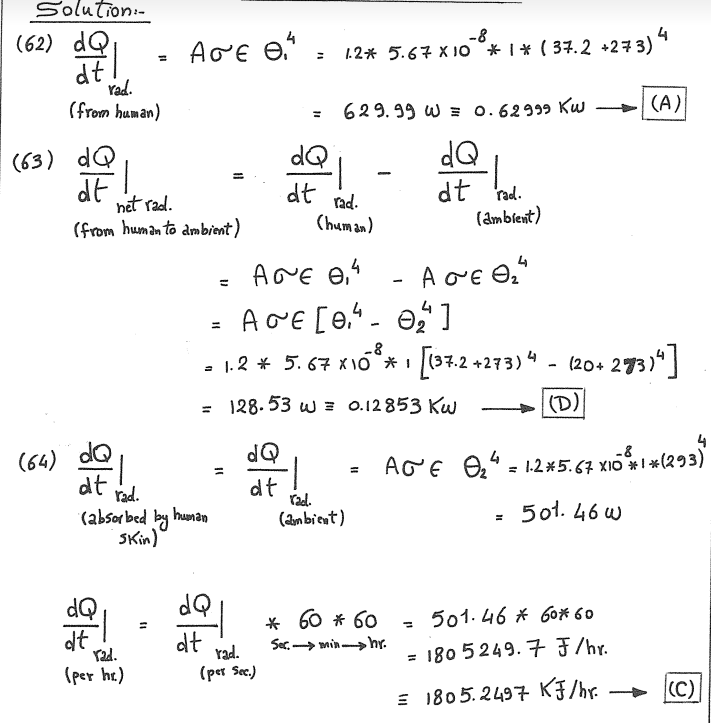 Solution:-
(62) dQ/dt | rad. (from human) = AσE θ₁⁴ = 1.2* 5.67 X 10⁻⁸ * 1 * (37.2 +273)⁴
= 629.99 W ≡ 0.62999 KW → (A)
(63) dQ/dt | net rad. (from human to ambient) = dQ/dt | rad. (human) - dQ/dt | rad. (ambient)
= AσE θ₁⁴ - AσE θ₂⁴
= AσE [θ₁⁴ - θ₂⁴]
= 1.2 * 5.67 X10⁻⁸ * 1 [(37.2 +273)⁴ - (20+ 273)⁴]
= 128.53 W ≡ 0.12853 KW → (D)
(64) dQ/dt | rad. (absorbed by human skin) = dQ/dt | rad. (ambient) = AσE θ₂⁴ = 1.2*5.67 X10⁻⁸*1*(293)⁴
= 501.46 W
dQ/dt | rad. (per hr.) = dQ/dt | rad. (per sec.) * 60 * 60 = 501.46 * 60*60
Sec. → min → hr.
= 1805249.7 J/hr.
≡ 1805.2497 KJ/hr. → (C)